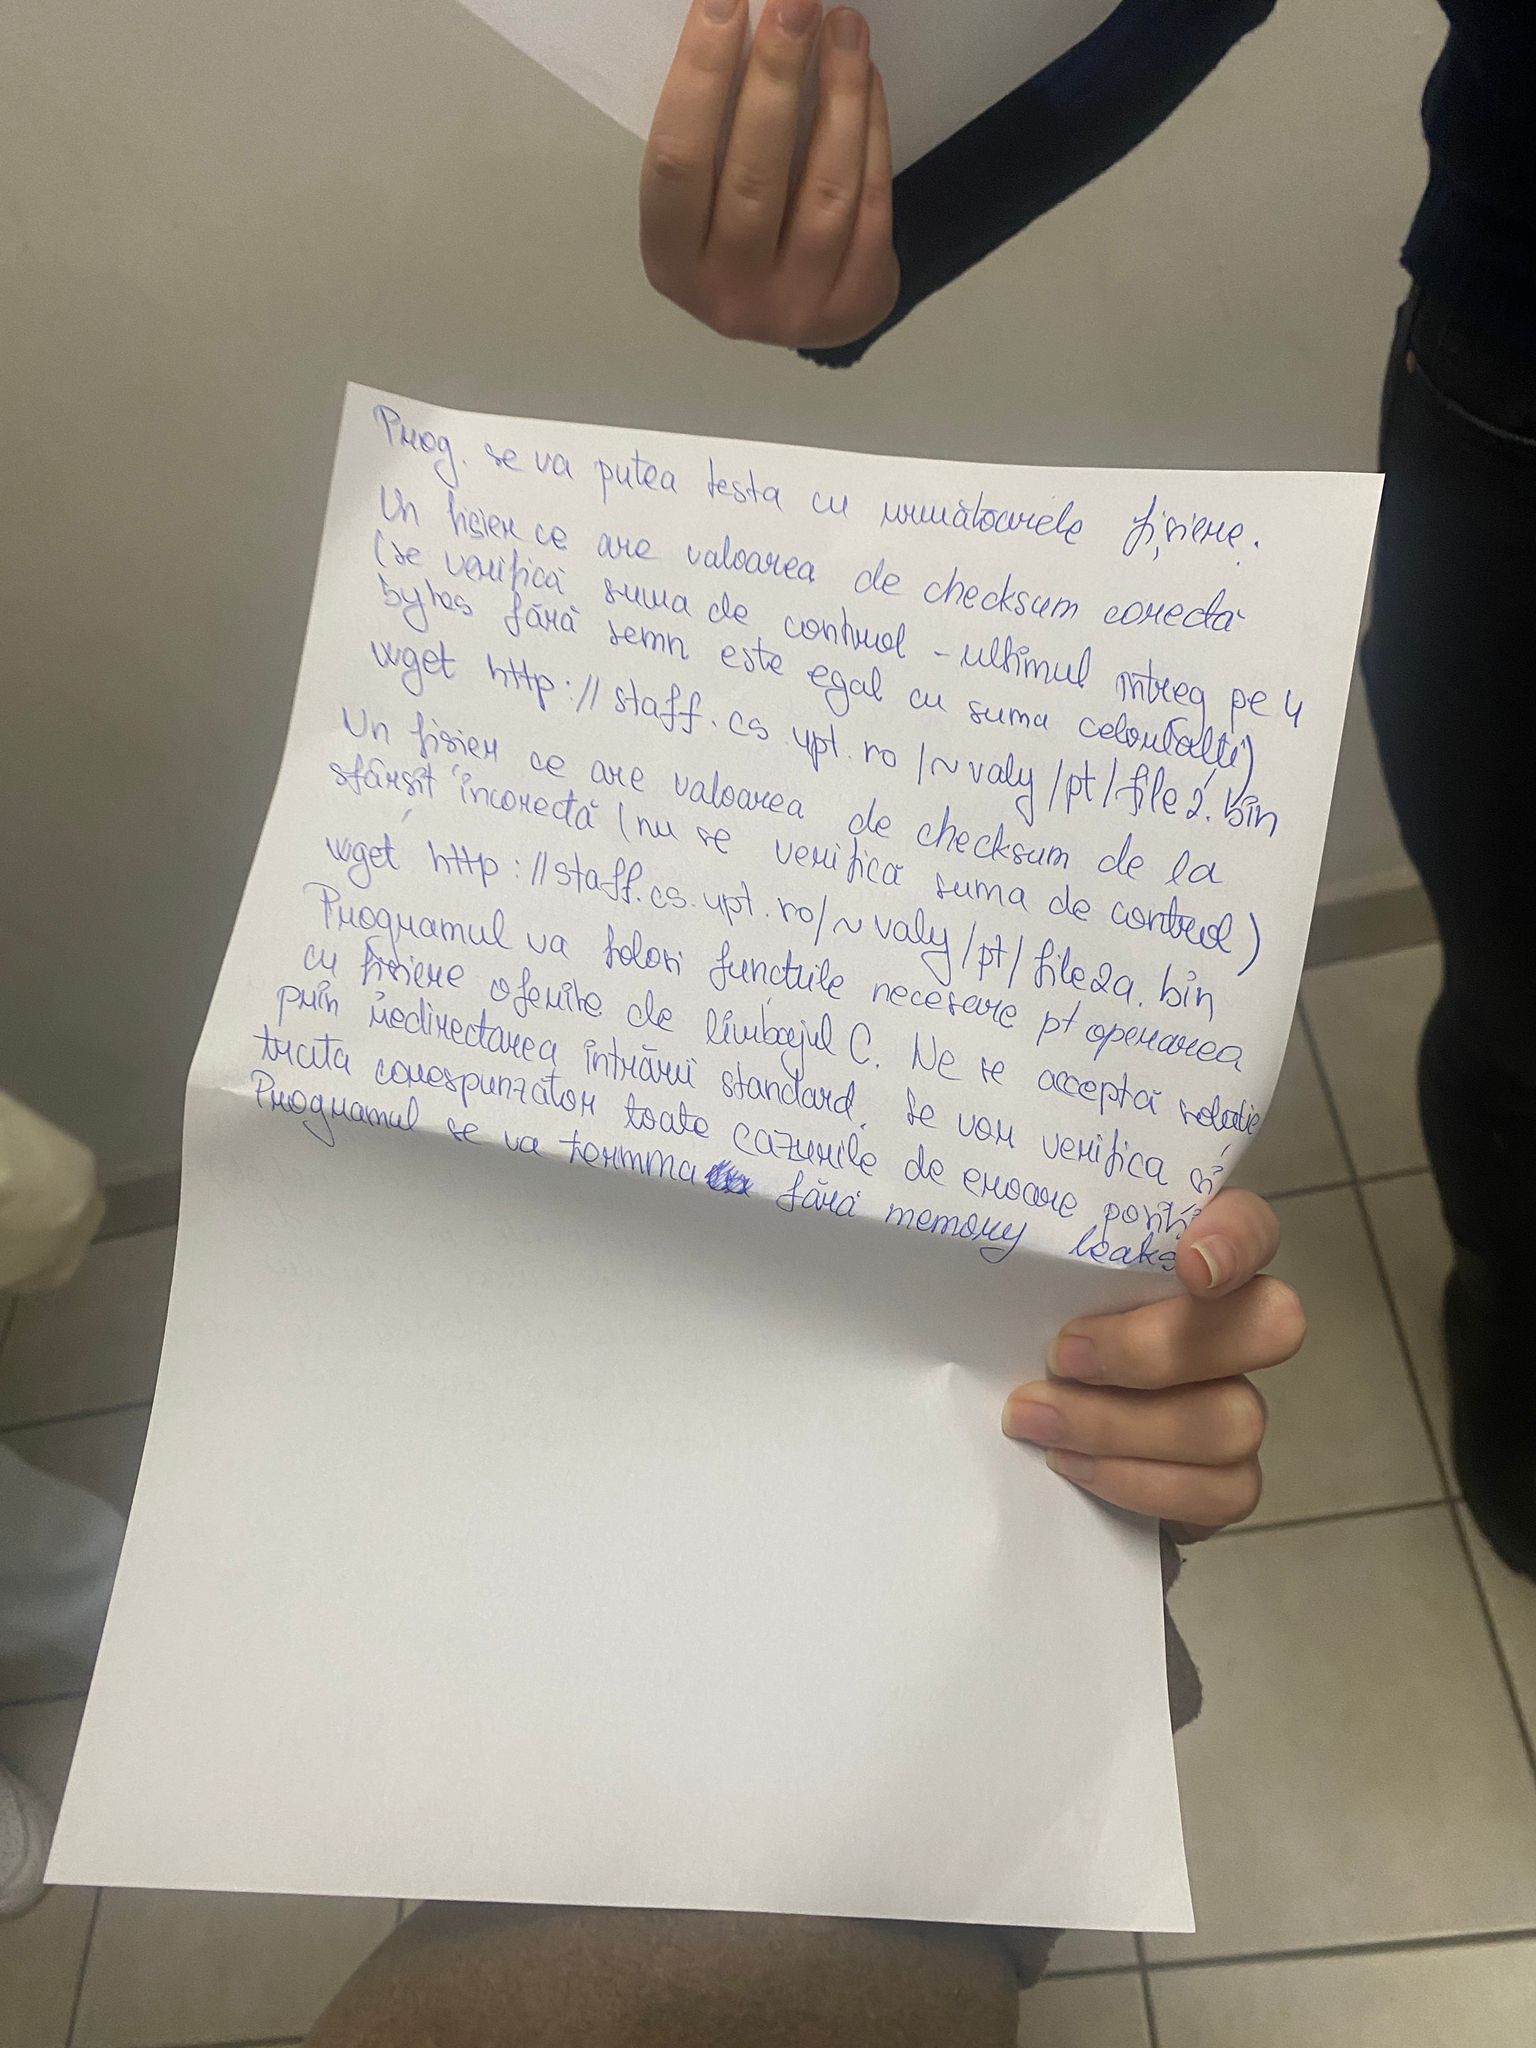 Prog. se va putea testa cu următoarele fișiere.
Un fisier ce are valoarea de checksum corectă
(se verifică suma de control - ultimul întreg pe 4
bytes fără semn este egal cu suma celorlalți)
wget http://staff.cs.upt.ro/~valy/pt/file2.bin
Un fisier ce are valoarea de checksum de la
sfârșit incorectă (nu se verifică suma de control)
wget http://staff.cs.upt.ro/~valy/pt/file2a.bin
Programul va folosi funcțiile necesare pt operarea
cu fisiere oferite de limbajul C. Ne se acceptă soluție
prin redirectarea intrării standard. Se vor verifica și
trata corespunzător toate cazurile de eroare
Programul se va termina fără memory leaks